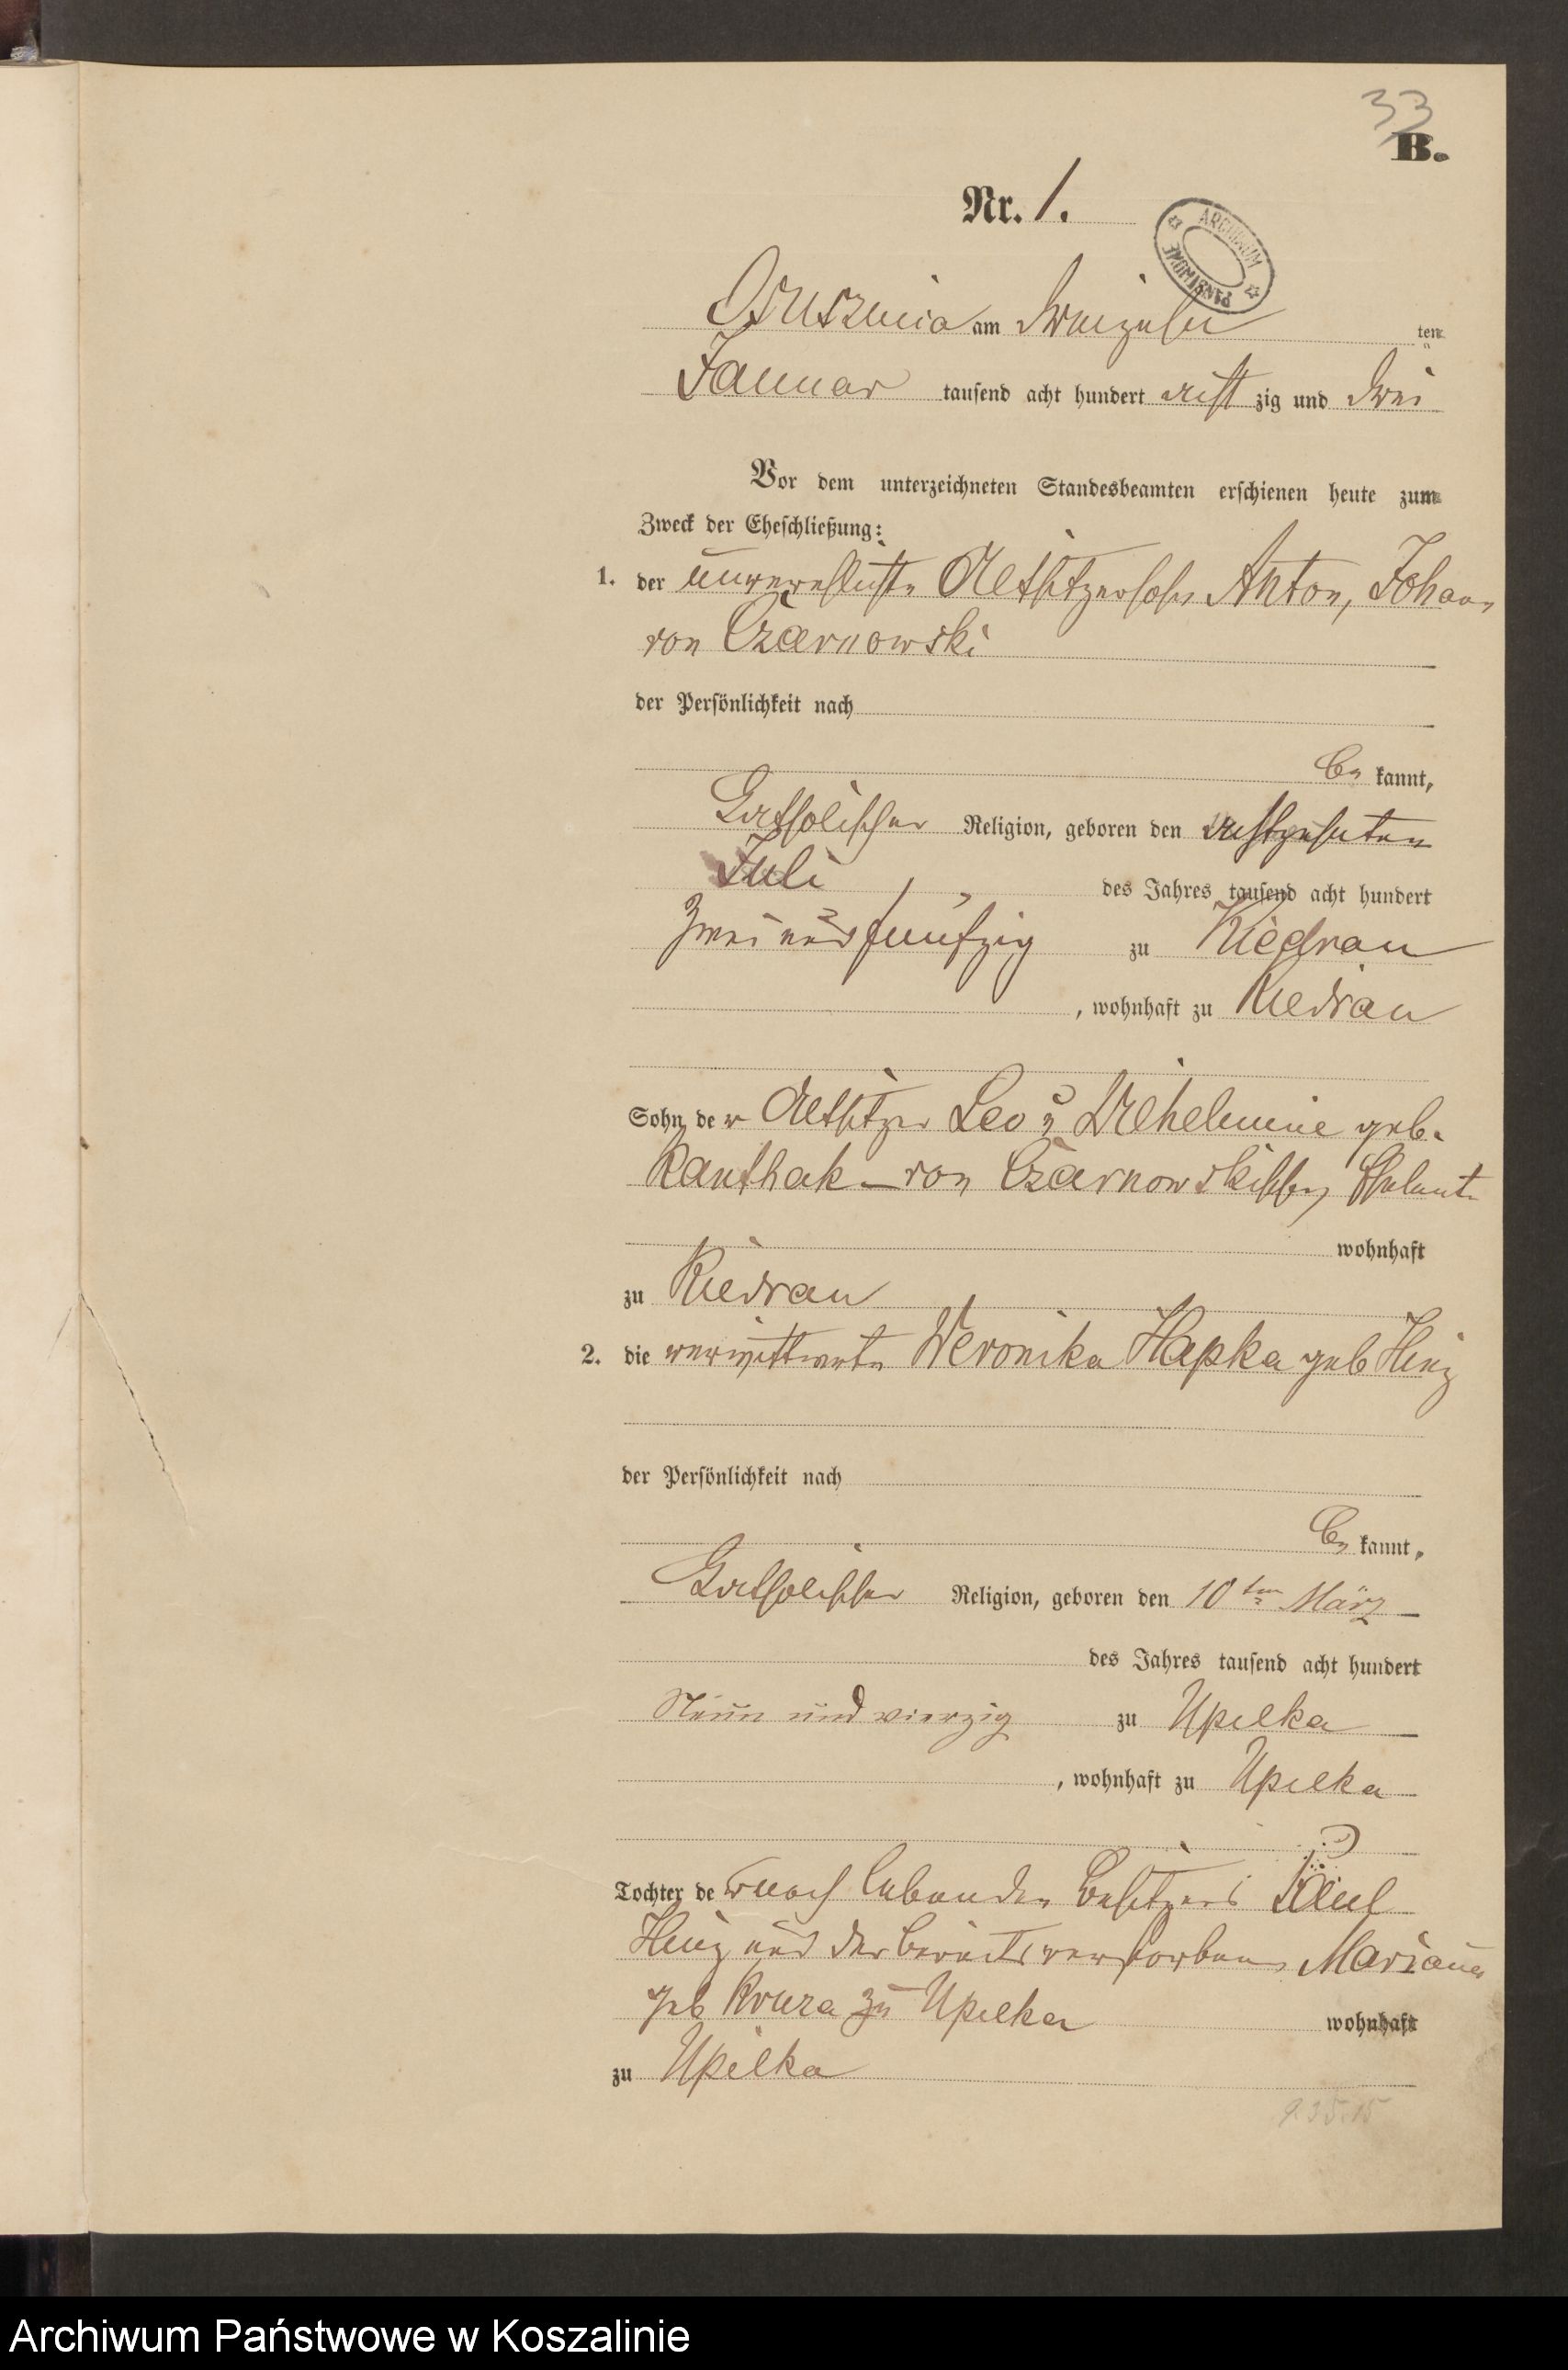 33
B.
Nr. 1.
ARCHIWUM PAŃSTWOWE
Ossusznica am dreizehn ten
Januar tausend acht hundert acht zig und drei
Vor dem unterzeichneten Standesbeamten erschienen heute zum
Zweck der Eheschließung:
1. der unverehelichte Altsitzersohn Anton, Johann
von Czarnowski
der Persönlichkeit nach
be kannt,
katholischer Religion, geboren den achtzehnten
Juli des Jahres tausend acht hundert
zwei und fünfzig zu Kiedrau
, wohnhaft zu Kiedrau
Sohn der Altsitzer Leo u Wilhelmine geb.
Kanthak - von Czarnowskischen Eheleute
wohnhaft
zu Kiedrau
2. die verwittwete Veronika Hapka geb Hinz
der Persönlichkeit nach
be kannt,
katholischer Religion, geboren den 10ten März
des Jahres tausend acht hundert
Neun und vierzig zu Upilka
, wohnhaft zu Upilka
Tochter de noch lebenden Besitzers Paul
Hinz und der bereits verstorbenen Marianna
geb zu Upilka wohnhaft
zu Upilka
9.35.15
Archiwum Państwowe w Koszalinie